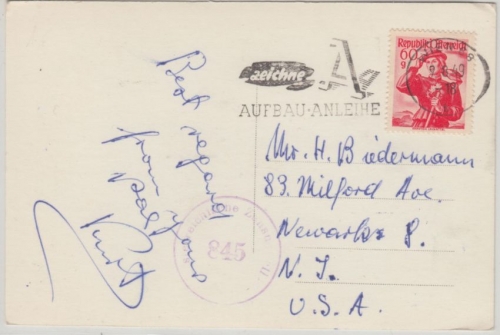 Best regards
from your
pal
Kurt
zeichne
AUFBAU-ANLEIHE
Republik Österreich
60
g
49
Mr. H. Biedermann
83. Milford Ave.
Newark 8.
N. J.
U. S. A.
845